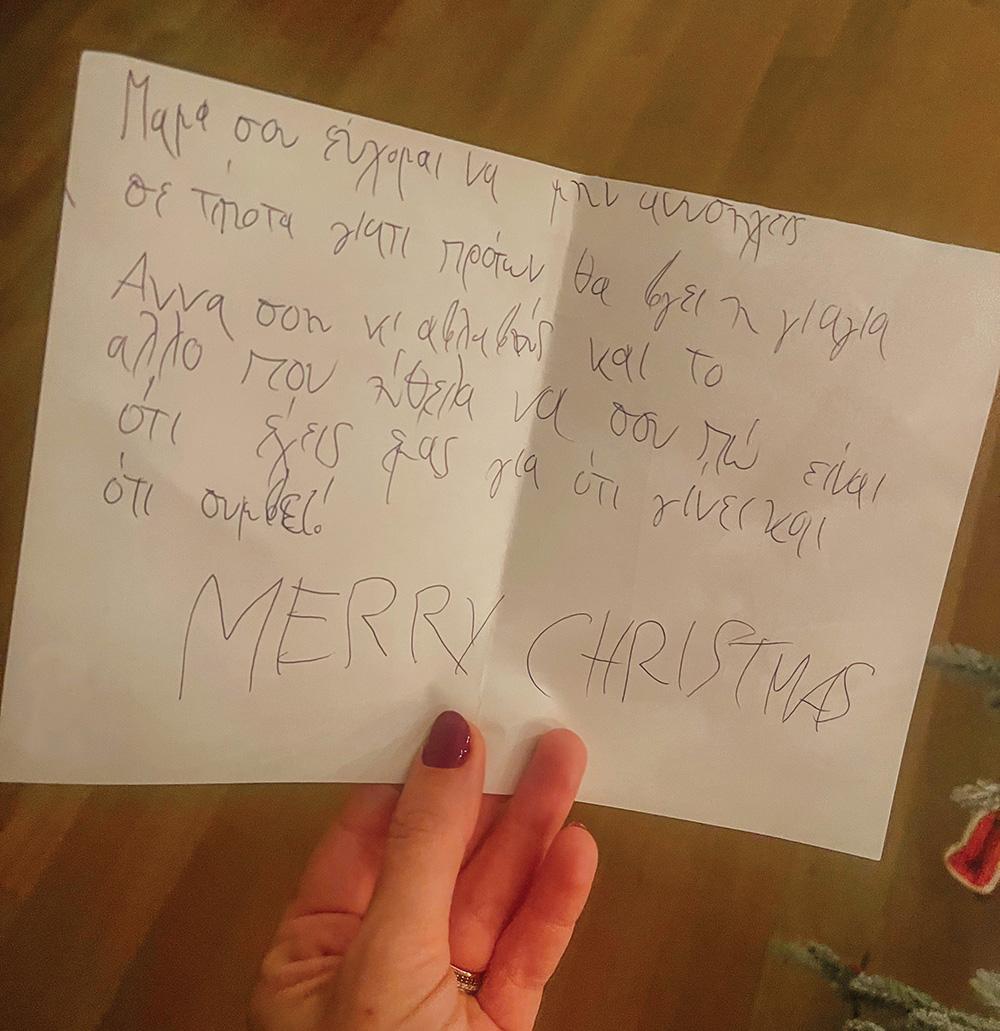 Μαμά σου εύχομαι να μην ανησηχεις
σε τίποτα γιατι πρότων θα βγει η γιαγια
Αννα σοη κ' αβλαβής και το
αλλο που ήθελα να σου πώ είναι
ότι έχεις εμας για ότι γίνει και
ότι συμβεί!
MERRY CHRISTMAS